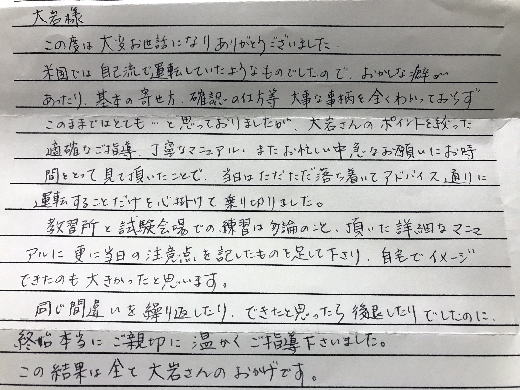 大岩様
この度は大変お世話になりありがとうございました。
米国では自己流で運転していたようなものでしたので、おかしな癖が
あったり、基本の寄せ方、確認の仕方等 大事な事柄を全くわかっておらず
このままではとても…と思っておりましたが、大岩さんのポイントを絞った
適確なご指導、丁寧なマニュアル、またお忙しい中急なお願いにお時
間をとって見て頂いたことで、当日はただただ落ち着いてアドバイス通りに
運転することだけを心掛けて乗り切りました。
教習所と試験会場での練習は勿論のこと、頂いた詳細なマニュ
アルに更に当日の注意点を記したものを足して下さり、自宅でイメージ
できたのも大きかったと思います。
同じ間違いを繰り返したり、できたと思ったら後退したりでしたのに、
終始本当にご親切に温かくご指導下さいました。
この結果は全て大岩さんのおかげです。